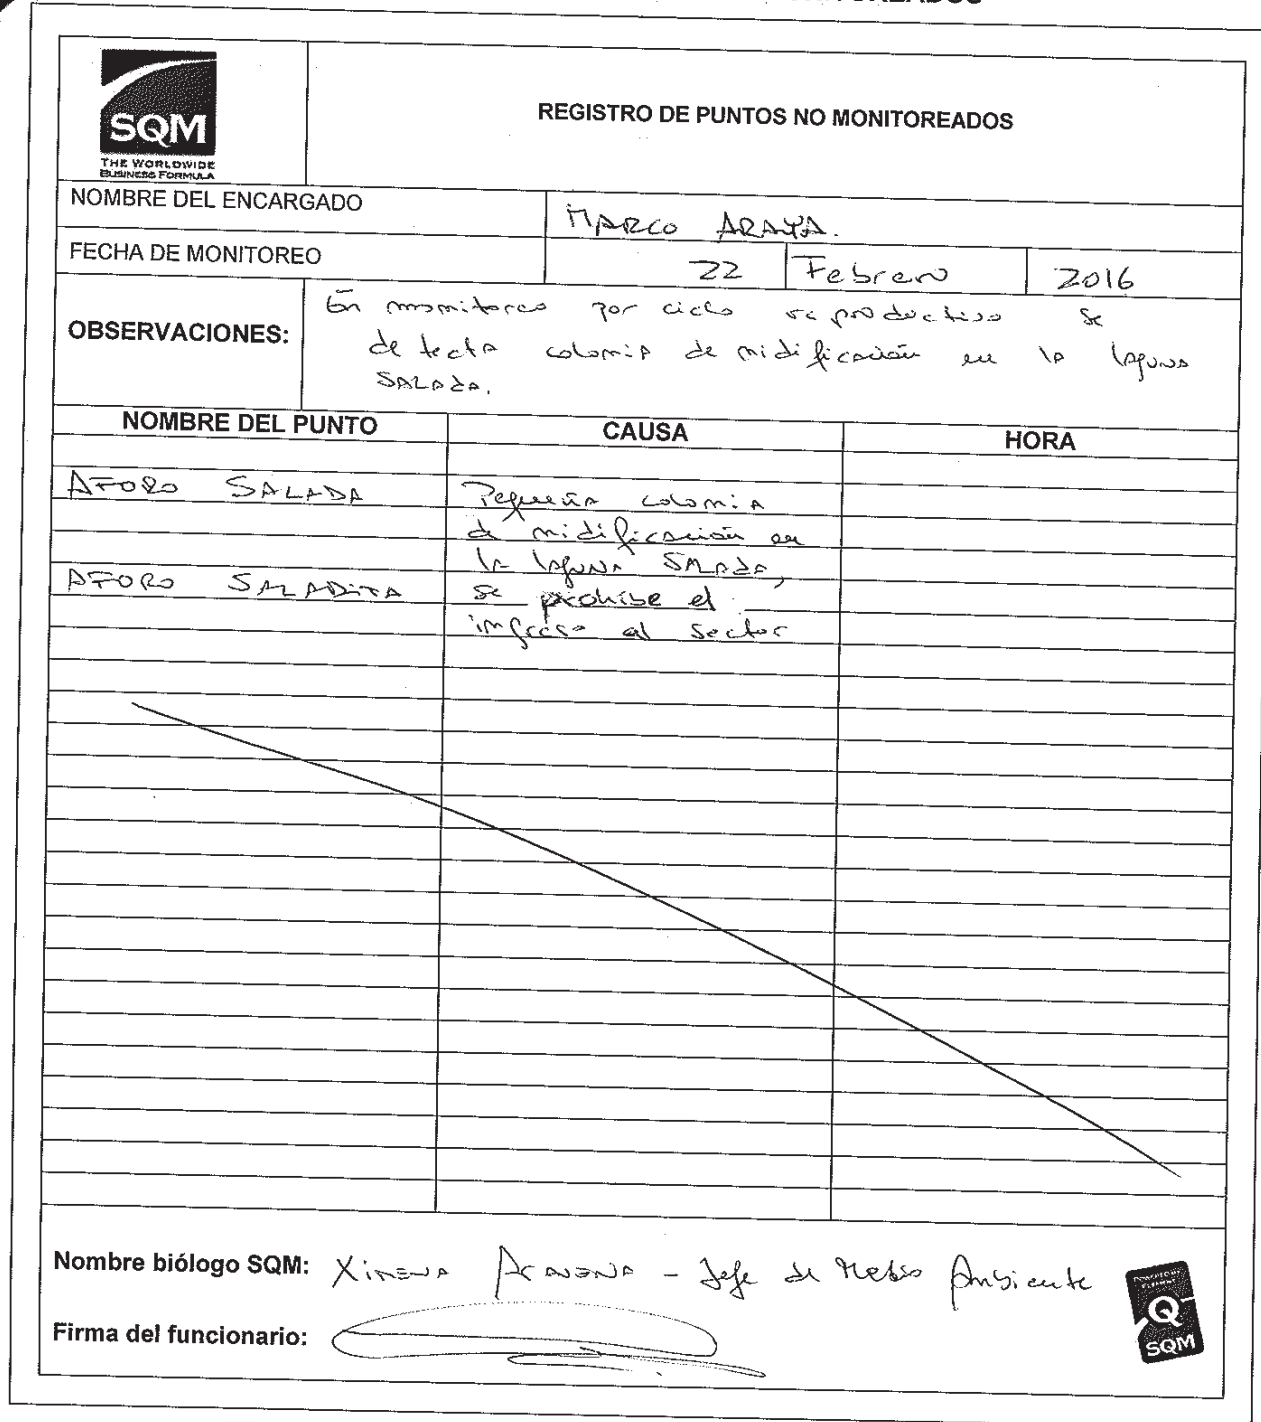 SQM
THE WORLDWIDE
BUSINESS FORMULA
REGISTRO DE PUNTOS NO MONITOREADOS
NOMBRE DEL ENCARGADO
MARCO ARAYA.
FECHA DE MONITOREO
22 Febrero 2016
OBSERVACIONES:
En monitoreo por ciclo reproductivo se
detecta colonia de nidificación en la laguna
SALADA.
NOMBRE DEL PUNTO CAUSA HORA
AFORO SALADA
Pequeña colonia
de nidificación en
la laguna SALADA,
AFORO SALADITA
se prohibe el
ingreso al sector
Nombre biólogo SQM: XIMENA ARAVENA - Jefe de Medio Ambiente
Firma del funcionario:
Q
SQM